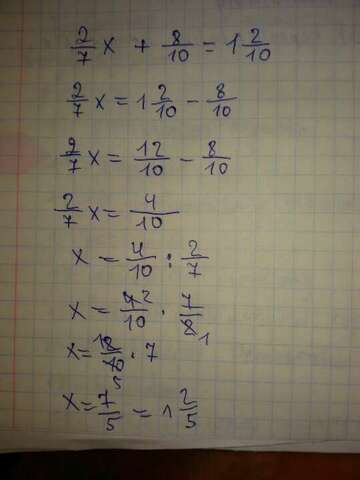 2/7 x + 8/10 = 1 2/10
2/7 x = 1 2/10 - 8/10
2/7 x = 12/10 - 8/10
2/7 x = 4/10
x = 4/10 : 2/7
x = 4 2/10 · 7/2 1
x = /10 5 · 7
x = 7/5 = 1 2/5